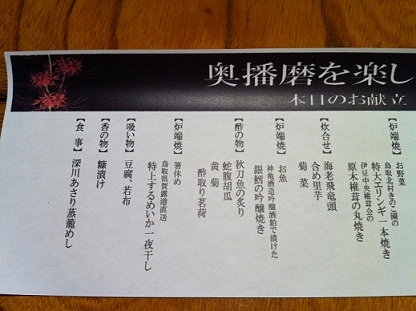 奥播磨を楽し
本日のお献立
お野菜
鳥取北村きのこ園の
特大エリンギ一本焼き
伊豆中央椎茸会の
原木椎茸の丸焼き
【炊合せ】
海老飛竜頭
含め里芋
菊菜
【炉端焼】
お魚
神亀酒造吟醸酒粕で漬けた
銀鱈の吟醸焼き
【酢の物】
秋刀魚の炙り
蛇腹胡瓜
黄菊
酢取り茗荷
【炉端焼】
箸休め
鳥取県賀露港直送
特上するめいか一夜干し
【吸い物】
豆腐、若布
【香の物】
糠漬け
【食事】
深川あさり蒸籠めし